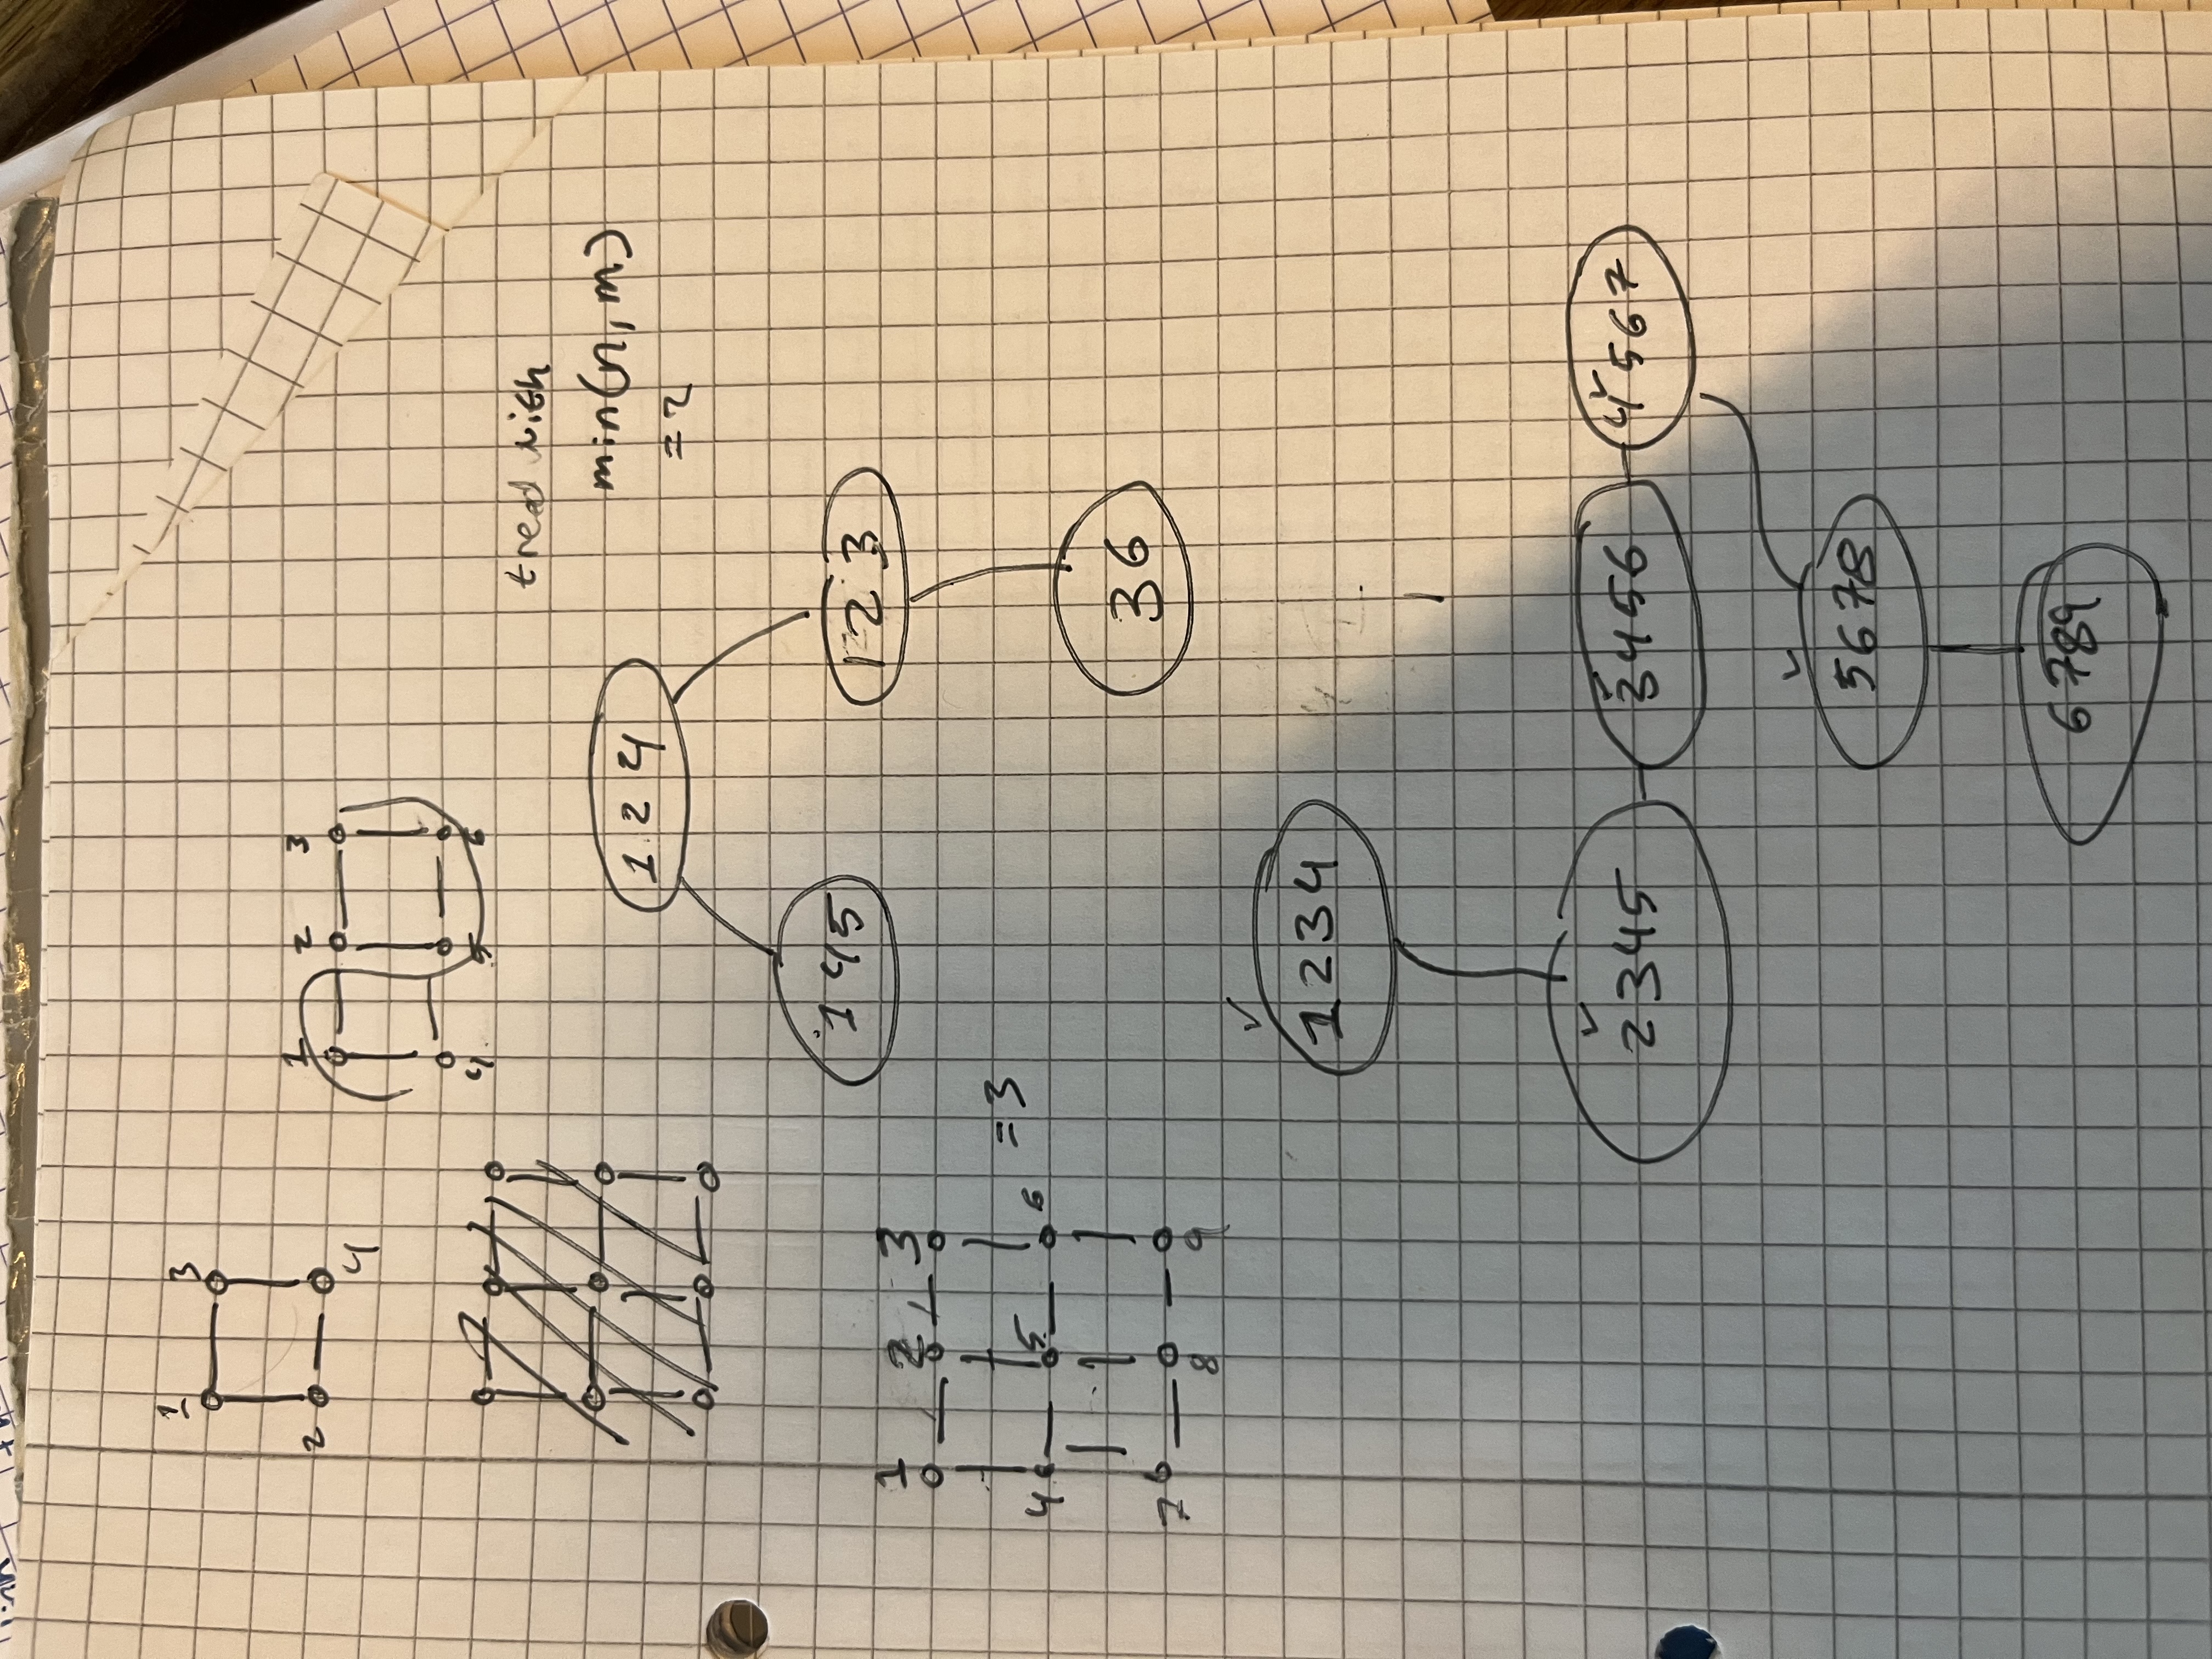 1 3
2
4
1 2 3
4 5 6
tree with
min(n, m)
= 2
1 2 4
1 4 5
1 2 3
3 6
1 2 3
4 5 6
= 3
7
8 9
1 2 3 4
2 3 4 5
3 4 5 6
4 5 6 7
5 6 7 8
6 7 8 9